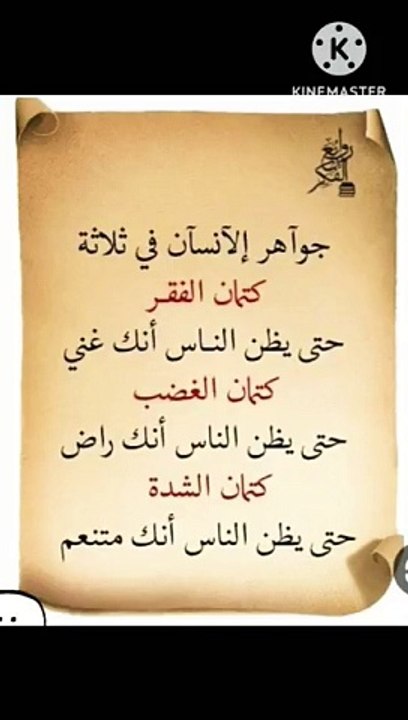 K
KINEMASTER
روائع الفكر
جوآهر إلآنسآن في ثلاثة
كتمان الفقـر
حتى يظن النـاس أنك غني
كتمان الغضب
حتى يظن الناس أنك راض
كتمان الشدة
حتى يظن الناس أنك متنعم